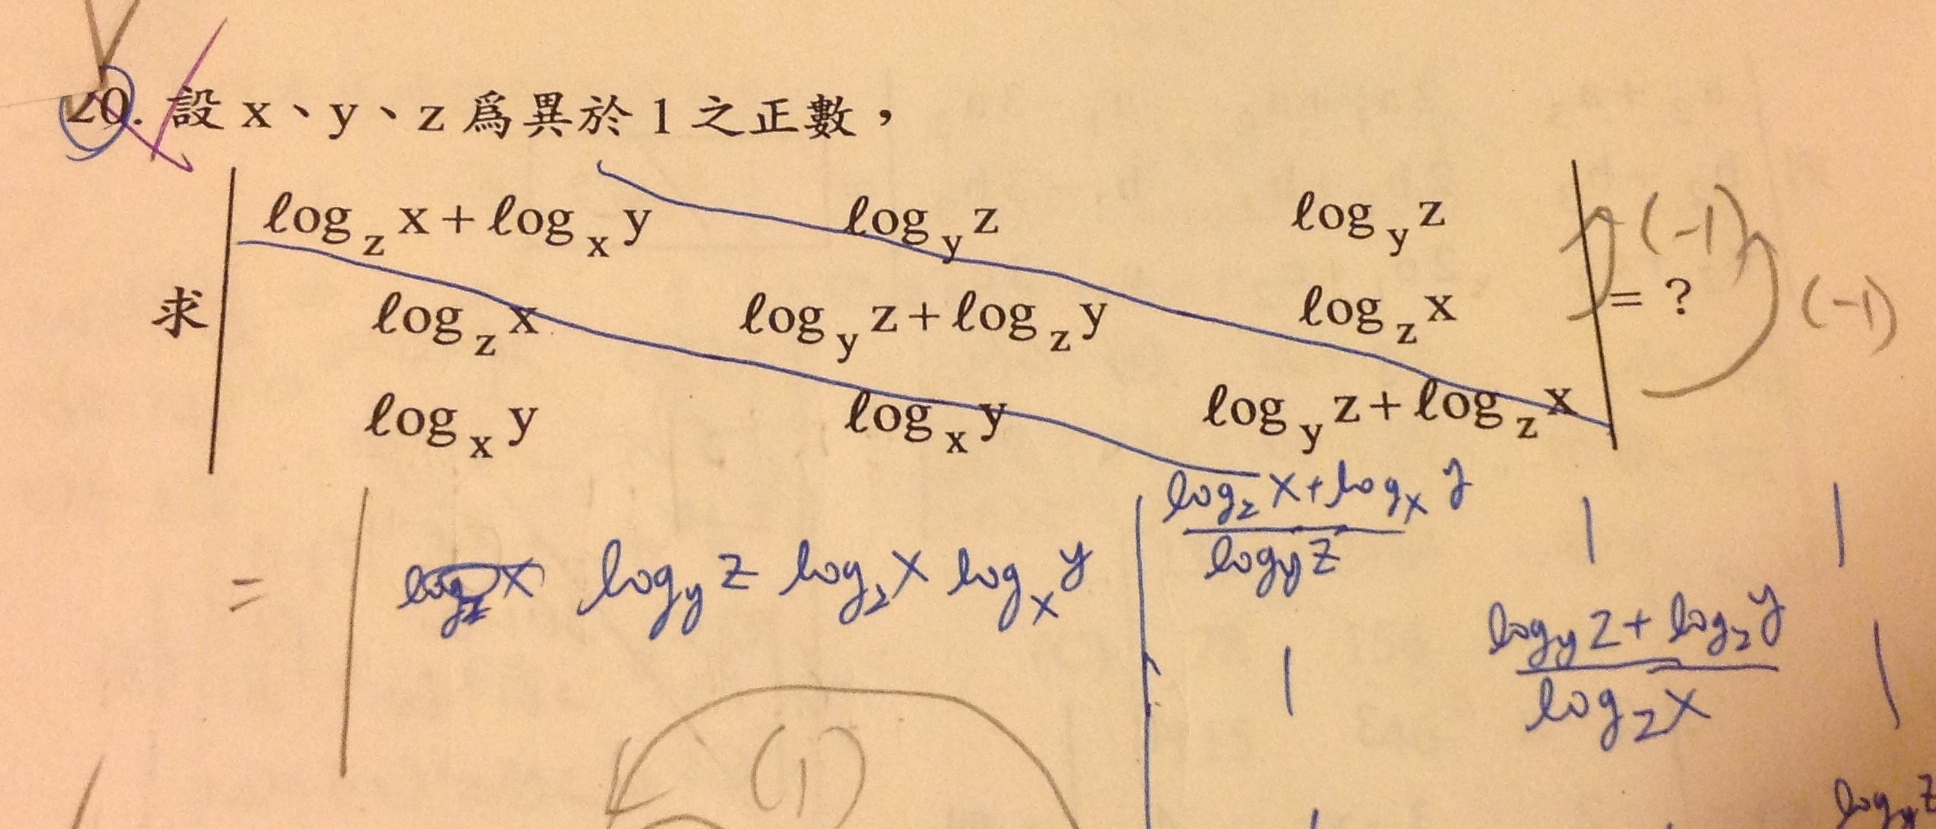 20. 設 x、y、z 爲異於 1 之正數，
log_z x + log_x y   log_y z   log_y z   (-1)
求   log_z x   log_y z + log_z y   log_z x   = ?   (-1)
log_x y   log_x y   log_y z + log_z x
log_z x + log_x y   1   1
log_y z
= log_y z log_z x log_x y
1   log_y z + log_z y   1
log_z x
(1)
log_y z